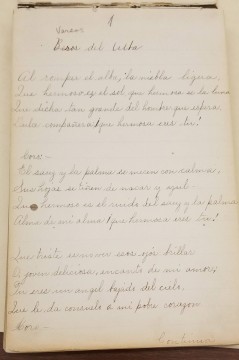 1
Versos
del
Al rompe el alba, la niebla ligera
Que hermoso es el sol que hermosa es la luna
Que dicha tan grande del hombre que espera
compañera! que hermosa eres tú!
Coro-
El sauz y la palma se mecen con calma,
Sus hojas se visten de nacar y azul-
Que hermoso es el ruido del sauz y la palma
Alma de mi alma! que hermosa eres tu!
Que triste ojos brillar
O joven deliciosa, encanto de mi amor,
Tu eres un angel bajado del cielo
Que le da consuelo a mi pobre corazon
Coro-